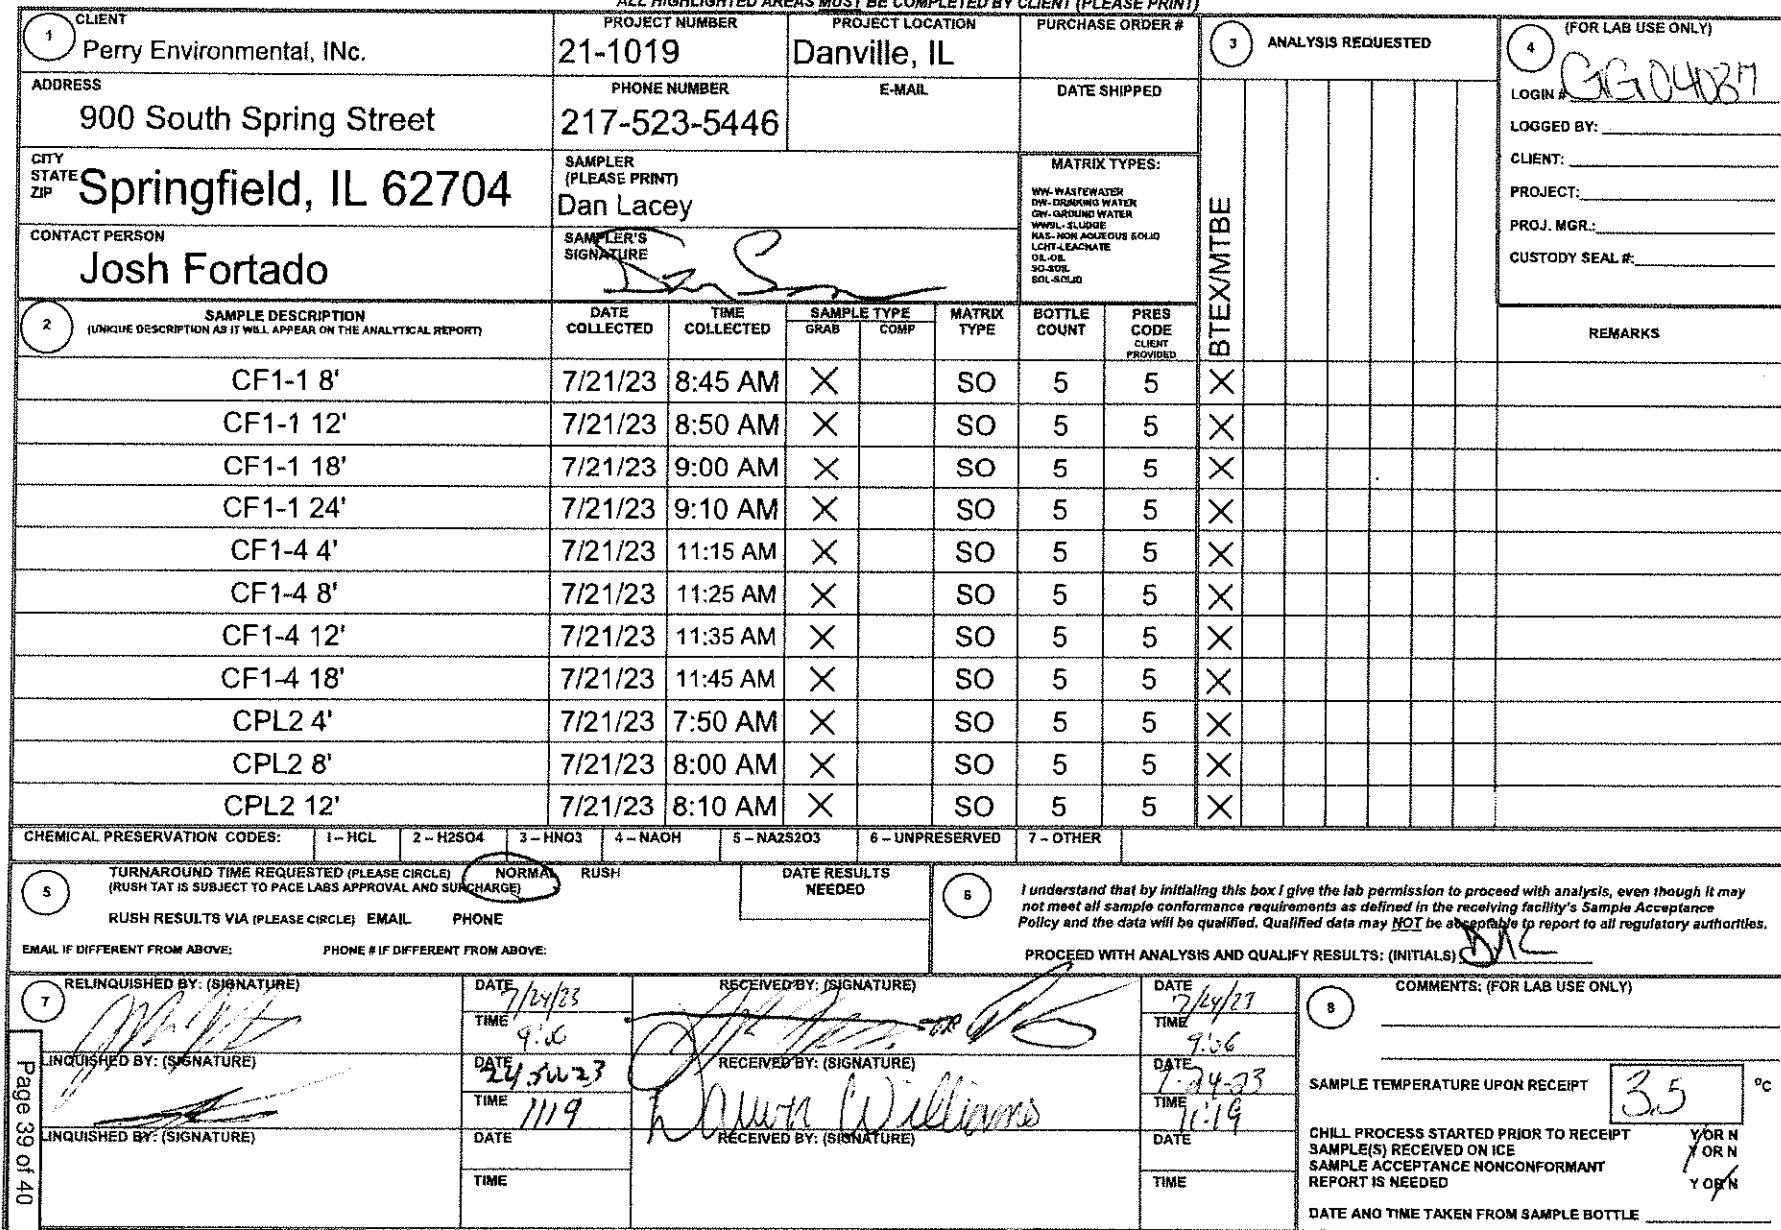 ALL HIGHLIGHTED AREAS MUST BE COMPLETED BY CLIENT (PLEASE PRINT)
1 CLIENT
Perry Environmental, INc.
PROJECT NUMBER
21-1019
PROJECT LOCATION
Danville, IL
PURCHASE ORDER #
3 ANALYSIS REQUESTED
4 (FOR LAB USE ONLY)
ADDRESS
900 South Spring Street
PHONE NUMBER
217-523-5446
E-MAIL
DATE SHIPPED
LOGIN #
LOGGED BY:
CLIENT:
PROJECT:
PROJ. MGR.:
CUSTODY SEAL #:
CITY
STATE
ZIP
Springfield, IL 62704
SAMPLER
(PLEASE PRINT)
Dan Lacey
MATRIX TYPES:
WW- WASTEWATER
DW- DRINKING WATER
GW- GROUND WATER
WWSL- SLUDGE
NAS- NON AQUEOUS SOLID
LCHT-LEACHATE
OIL-OIL
SO-SOIL
SOL-SOLID
BTEX/MTBE
CONTACT PERSON
Josh Fortado
SAMPLER'S
SIGNATURE
2 SAMPLE DESCRIPTION
(UNIQUE DESCRIPTION AS IT WILL APPEAR ON THE ANALYTICAL REPORT)
DATE COLLECTED
TIME COLLECTED
SAMPLE TYPE
GRAB COMP
MATRIX TYPE
BOTTLE COUNT
PRES CODE
CLIENT PROVIDED
REMARKS
CF1-1 8' 7/21/23 8:45 AM X SO 5 5 X
CF1-1 12' 7/21/23 8:50 AM X SO 5 5 X
CF1-1 18' 7/21/23 9:00 AM X SO 5 5 X
CF1-1 24' 7/21/23 9:10 AM X SO 5 5 X
CF1-4 4' 7/21/23 11:15 AM X SO 5 5 X
CF1-4 8' 7/21/23 11:25 AM X SO 5 5 X
CF1-4 12' 7/21/23 11:35 AM X SO 5 5 X
CF1-4 18' 7/21/23 11:45 AM X SO 5 5 X
CPL2 4' 7/21/23 7:50 AM X SO 5 5 X
CPL2 8' 7/21/23 8:00 AM X SO 5 5 X
CPL2 12' 7/21/23 8:10 AM X SO 5 5 X
CHEMICAL PRESERVATION CODES: 1 – HCL 2 – H2SO4 3 – HNO3 4 – NAOH 5 – NA2S2O3 6 – UNPRESERVED 7 – OTHER
5 TURNAROUND TIME REQUESTED (PLEASE CIRCLE) NORMAL RUSH
(RUSH TAT IS SUBJECT TO PACE LABS APPROVAL AND SURCHARGE)
RUSH RESULTS VIA (PLEASE CIRCLE) EMAIL PHONE
EMAIL IF DIFFERENT FROM ABOVE: PHONE # IF DIFFERENT FROM ABOVE:
DATE RESULTS
NEEDED
6 I understand that by initialing this box I give the lab permission to proceed with analysis, even though it may
not meet all sample conformance requirements as defined in the receiving facility's Sample Acceptance
Policy and the data will be qualified. Qualified data may NOT be acceptable to report to all regulatory authorities.
PROCEED WITH ANALYSIS AND QUALIFY RESULTS: (INITIALS)
7 RELINQUISHED BY: (SIGNATURE)
DATE 7/24/23
TIME
RECEIVED BY: (SIGNATURE)
DATE 7/24/23
TIME 9:06
LINQUISHED BY: (SIGNATURE)
DATE
TIME 1119
RECEIVED BY: (SIGNATURE)
Dawn Williams
DATE 7-24-23
TIME 11:19
LINQUISHED BY: (SIGNATURE)
DATE
TIME
RECEIVED BY: (SIGNATURE)
DATE
TIME
8 COMMENTS: (FOR LAB USE ONLY)
SAMPLE TEMPERATURE UPON RECEIPT 3.5 °C
CHILL PROCESS STARTED PRIOR TO RECEIPT Y OR N
SAMPLE(S) RECEIVED ON ICE Y OR N
SAMPLE ACCEPTANCE NONCONFORMANT
REPORT IS NEEDED Y OR N
DATE AND TIME TAKEN FROM SAMPLE BOTTLE
Page 39 of 40